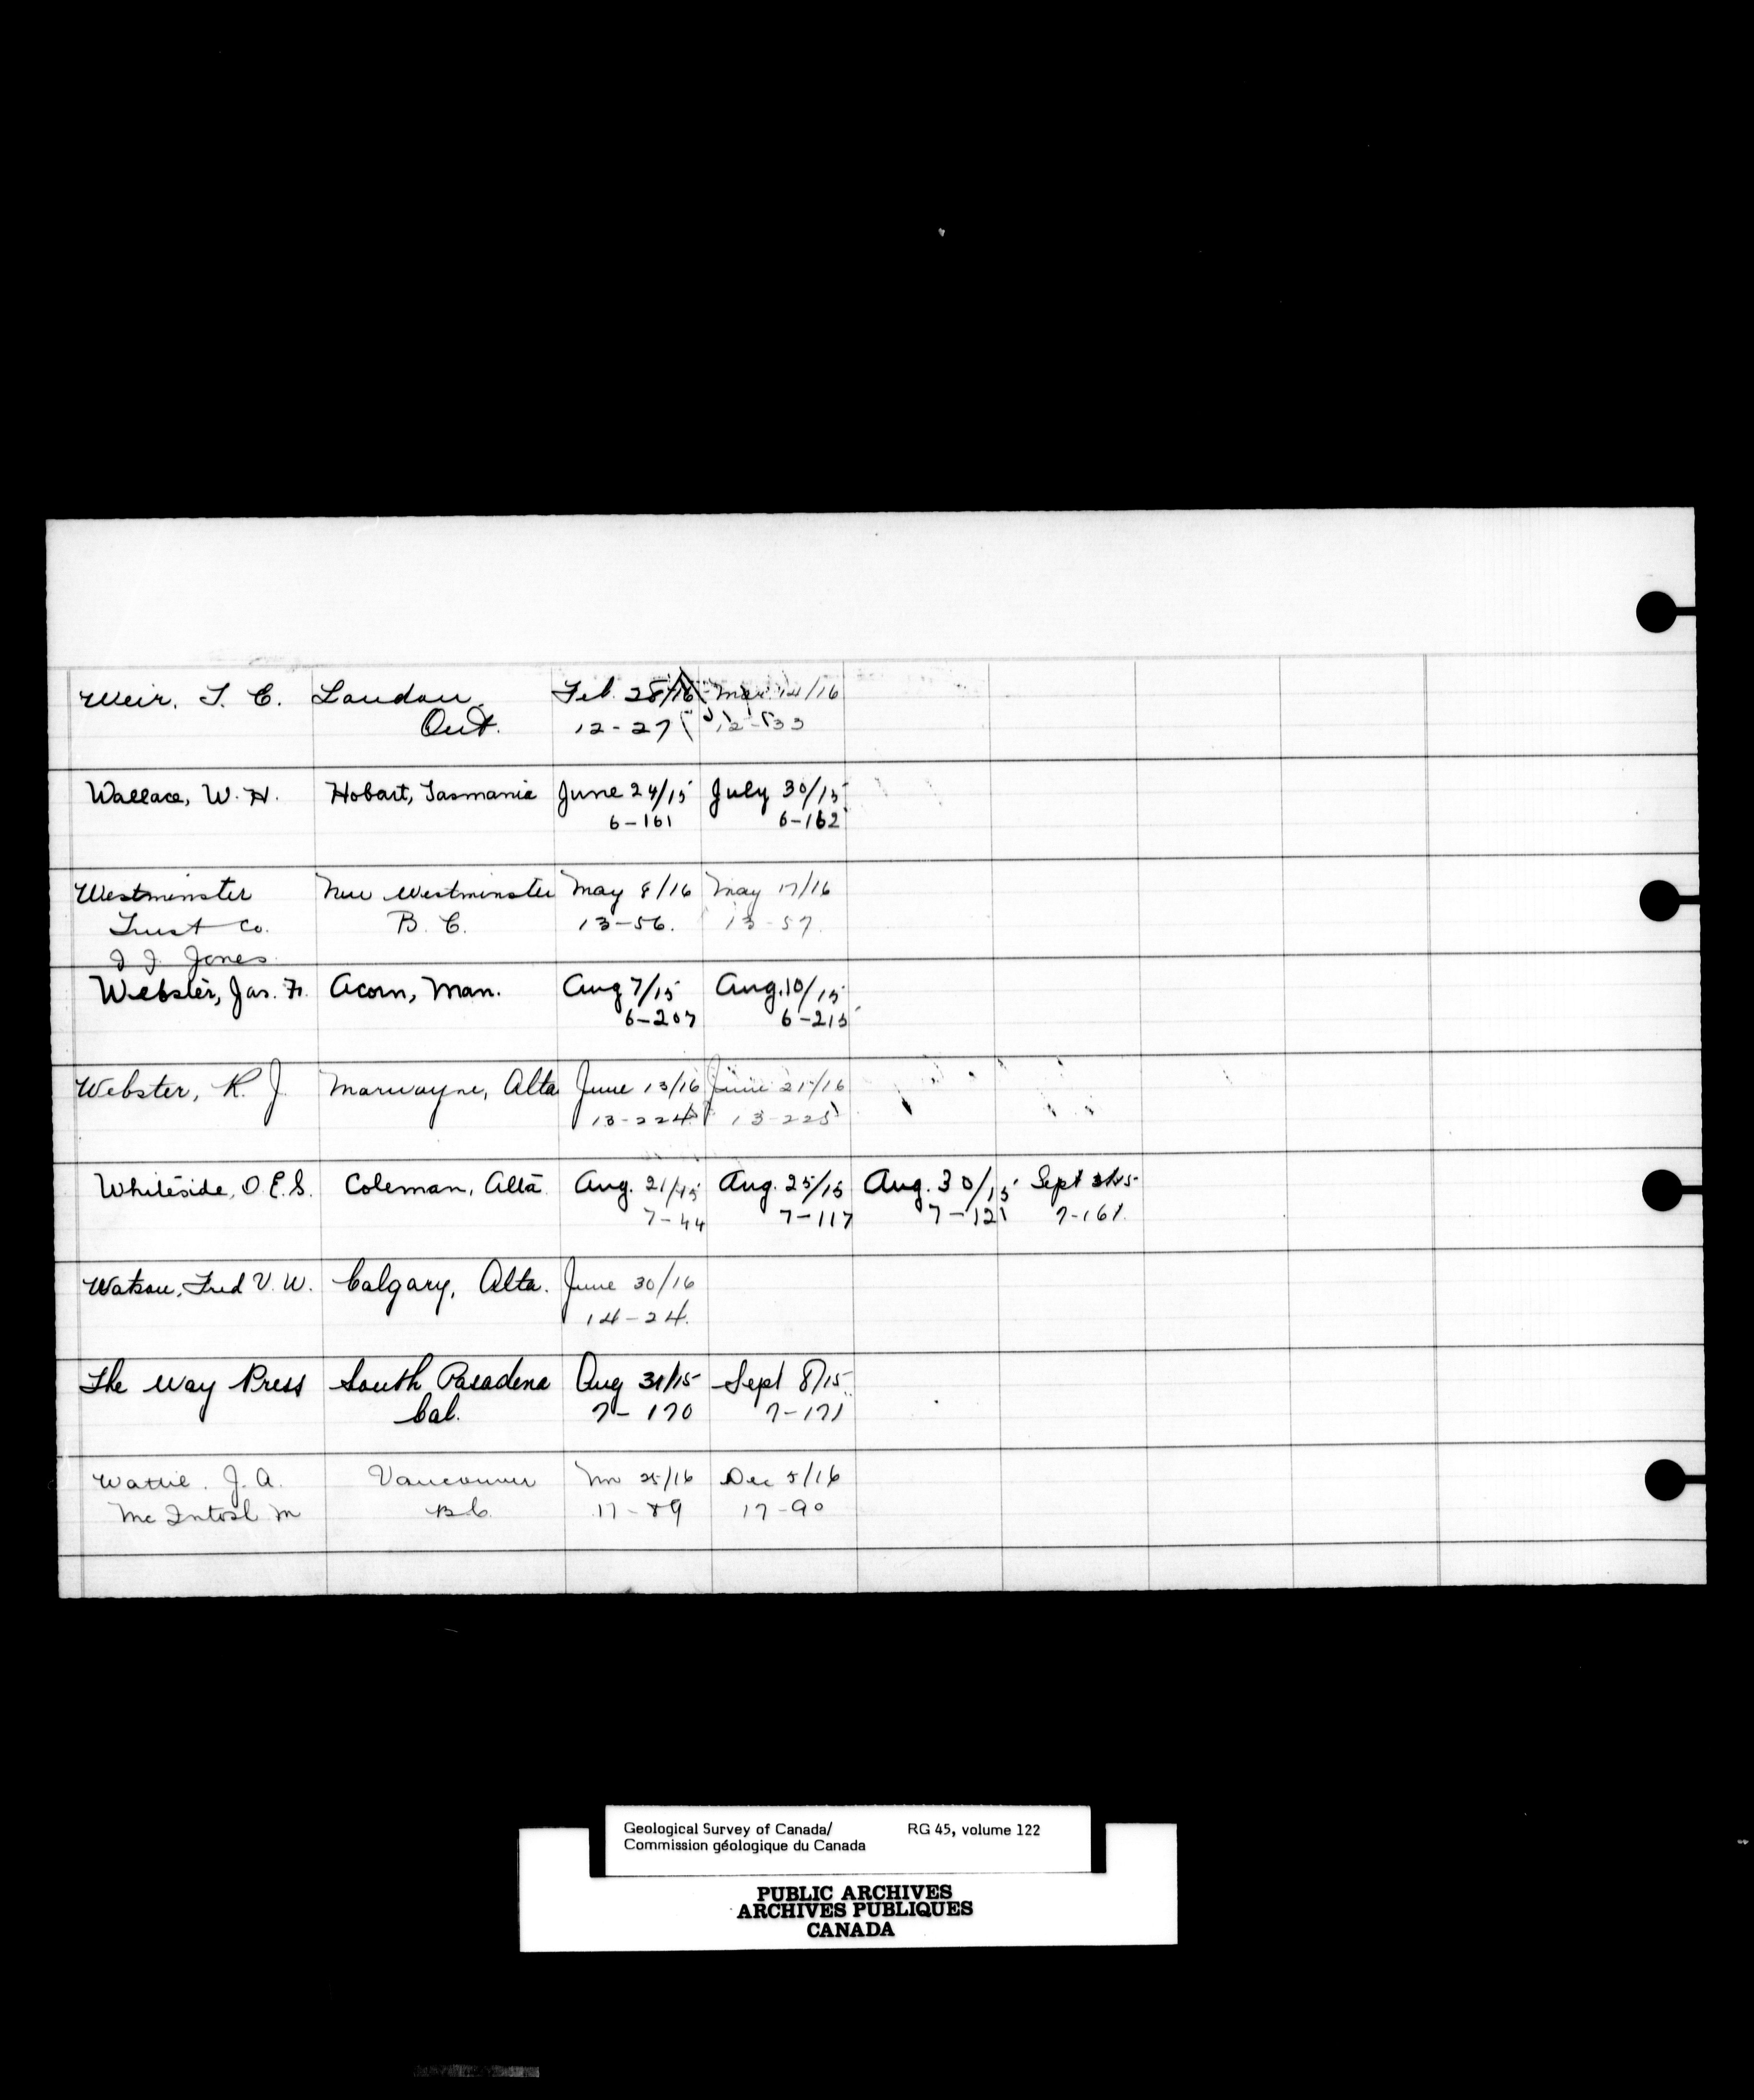 Weir, T. C. London Feb. 28/16 Mar 14/16
Ont. 12-27 12-33
Wallace, W. H. Hobart, Tasmania June 24/15 July 30/15
6-161 6-162
Westminster New Westminster May 8/16 May 17/16
Trust Co. B. C. 13-56. 13-57.
J. J. Jones
Webster, Jas. F. Acorn, Man. Aug 7/15 Aug. 10/15
6-207 6-215
Webster, R. J. Marwayne, Alta June 13/16 June 21/16
13-224 13-225
Whiteside, O. E. S. Coleman, Alta Aug. 21/15 Aug. 25/15 Aug. 30/15 Sept
7-44 7-117 7-121 7-161.
Watson, Fred V. W. Calgary, Alta. June 30/16
14-24.
The Way Press South Pasadena Aug 31/15 Sept 8/15
Cal. 7-170 7-171
Wattie. J. A. Vancouver Nov 25/16 Dec 5/16
McIntosh M B C. 17-89 17-90
Geological Survey of Canada/ RG 45, volume 122
Commission géologique du Canada
PUBLIC ARCHIVES
ARCHIVES PUBLIQUES
CANADA